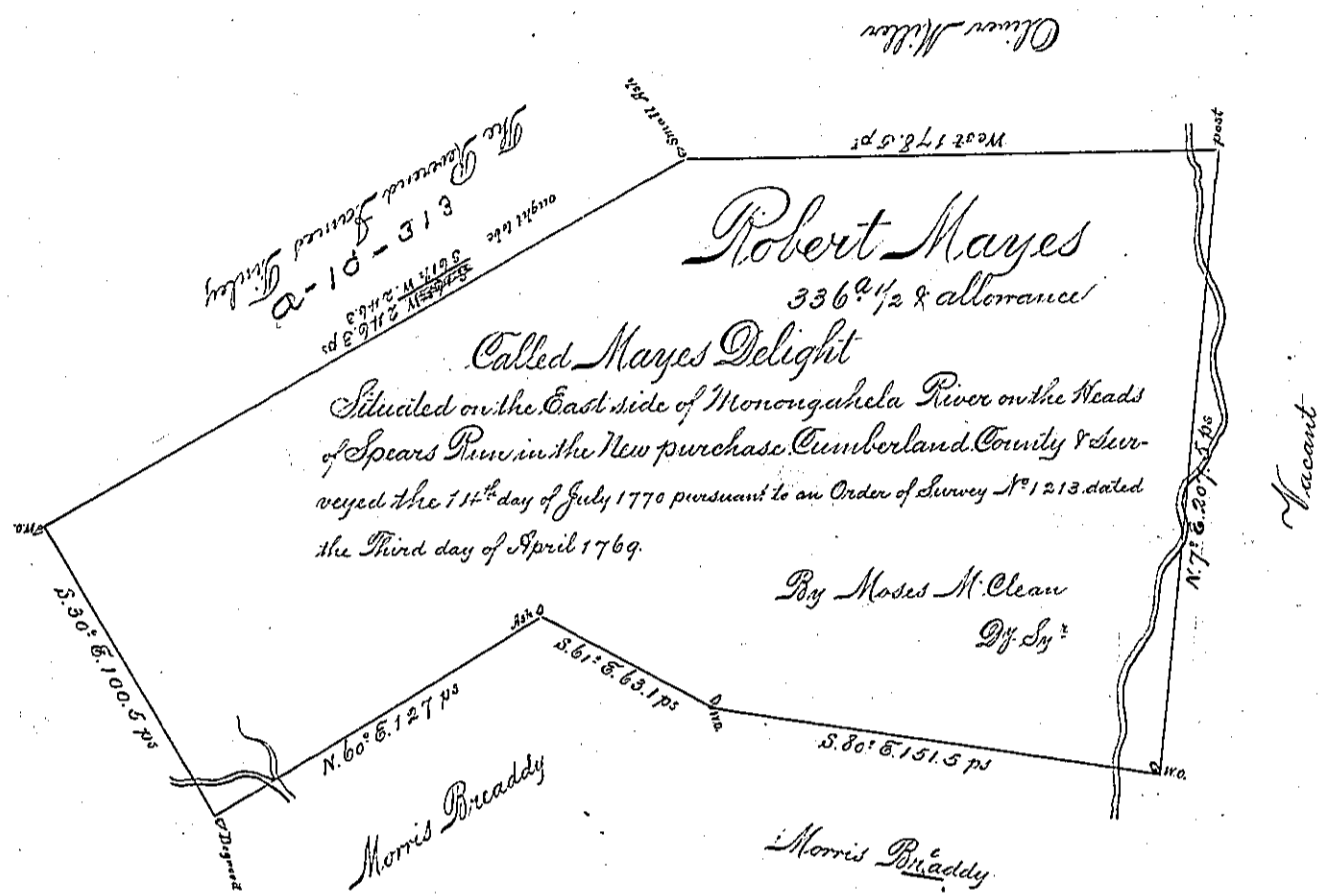 Oliver Miller
Small Ash
West 178.5 ps
post
The Reverend James Finley
D-10-313
ought to be
S 61½ W. 246.3
246.3 ps
Robert Mayes
336ª 1/2 & allowance
Called Mayes Delight
Situated on the East side of Monongahela River on the Heads
of Spears Run in the New purchase Cumberland County & Sur-
veyed the 14th day of July 1770 pursuant to an Order of Survey No 1213 dated
the Third day of April 1769.
By Moses McClean
Dy. Syr
Vacant
N. 7° E. 207.5 ps
W.O.
S. 30° E. 100.5 ps
Dogwood
N. 60° E. 127 ps
Ash
S. 61° E. 63.1 ps
W.O.
S. 80° E. 151.5 ps
W.O.
Morris Breaddy
Morris Breaddy